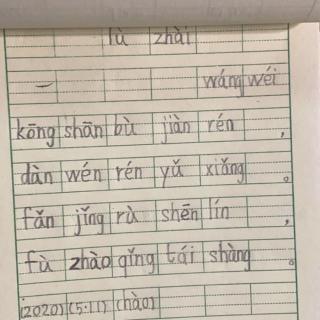 lù zhài
— wáng wéi
kōng shān bù jiàn rén ,
dàn wén rén yǔ xiǎng 。
fǎn jǐng rù shēn lín ,
fù zhào qǐng tái shàng 。
(2020) (5.11) (hào)